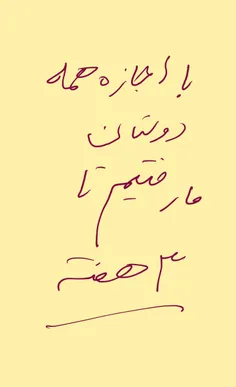 با اجازه همه
دوستان
ما رفتیم تا
۳ هفته